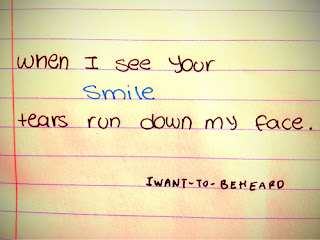 when I see your
smile
tears run down my face.
IWANT-TO-BEHEARD